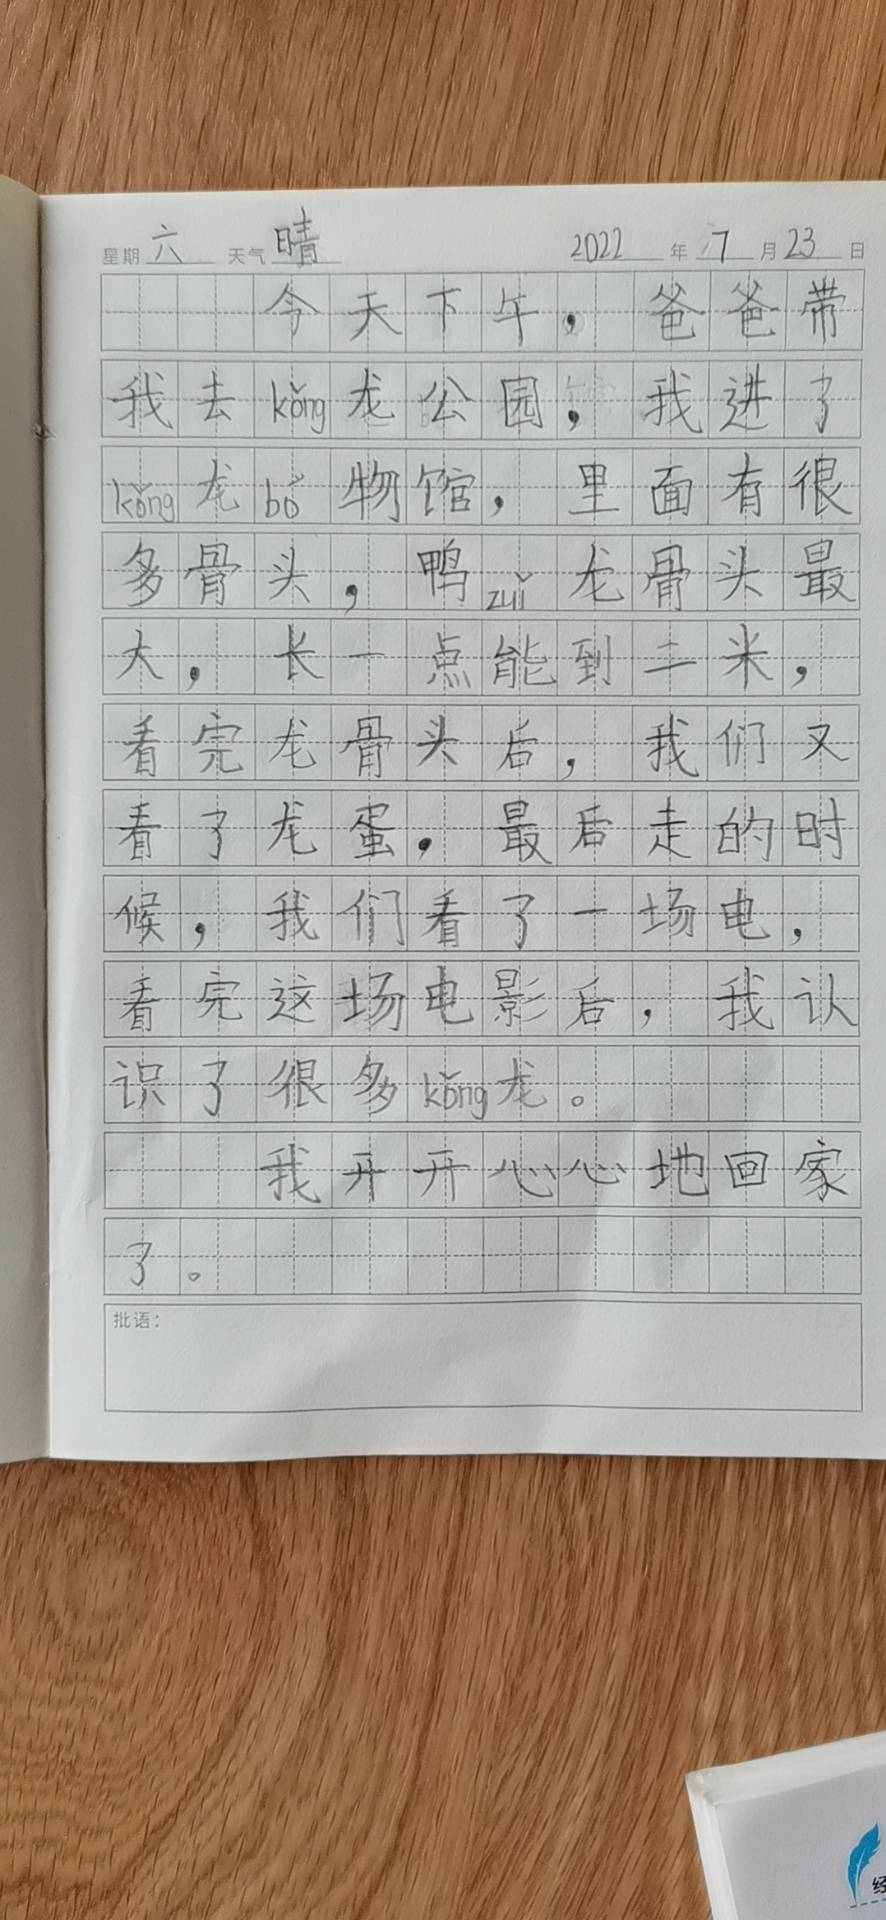 星期 六 天气 晴 2022 年 7 月 23 日
今天下午，爸爸带
我去kǒng龙公园，我进了
kǒng龙bó物馆，里面有很
多骨头，鸭zuǐ龙骨头最
大，长一点能到二米，
看完龙骨头后，我们又
看了龙蛋，最后走的时
候，我们看了一场电，
看完这场电影后，我认
识了很多kǒng龙。
我开开心心地回家
了。
批语：